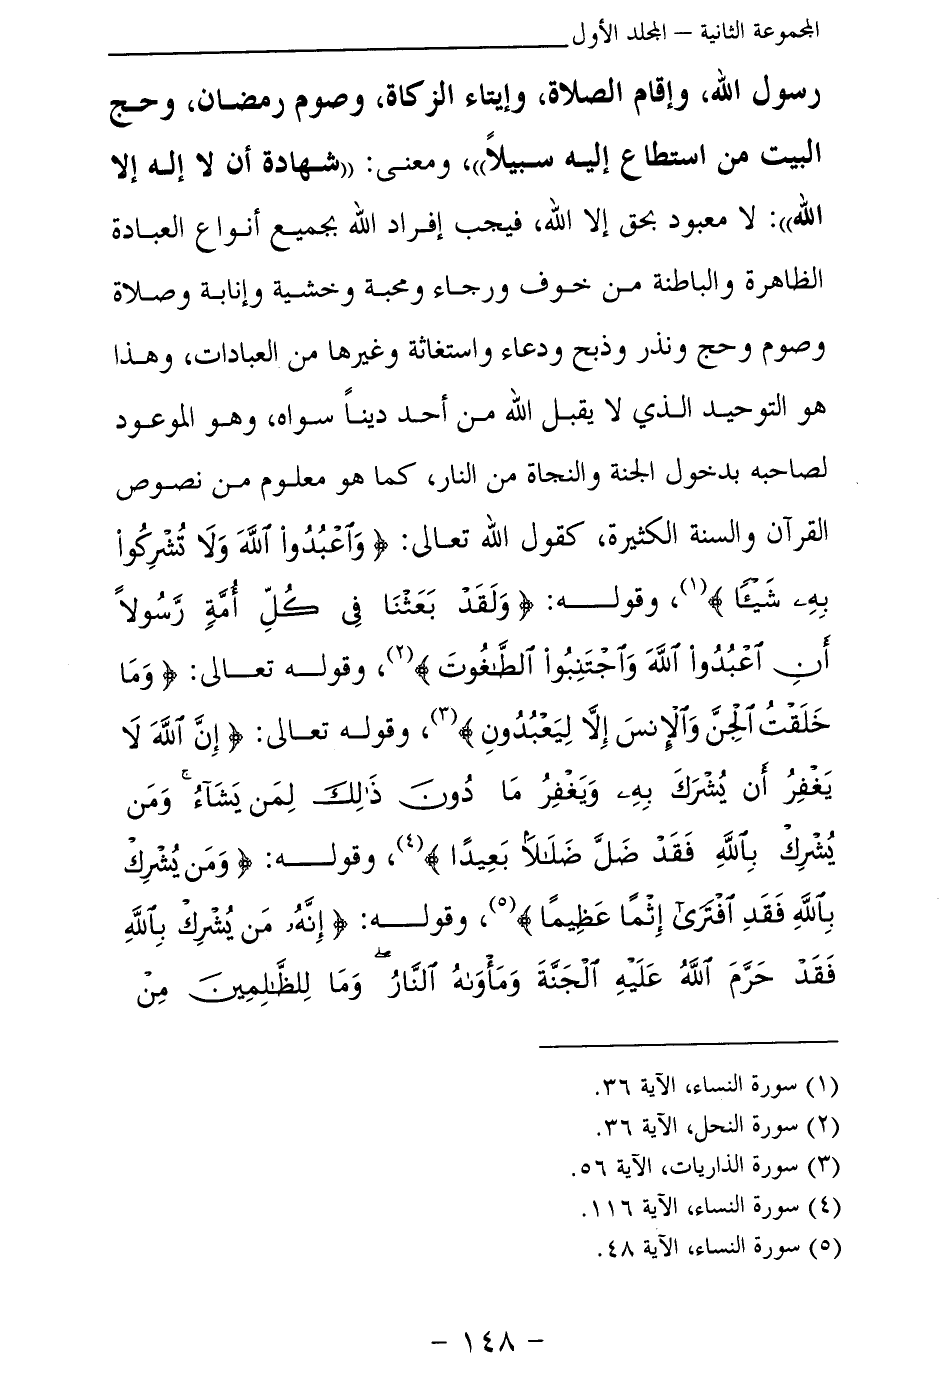 المجموعة الثانية – المجلد الأول
رسول الله، وإقام الصلاة، وإيتاء الزكاة، وصوم رمضان، وحج
البيت من استطاع إليه سبيلاً))، ومعنى: ((شهادة أن لا إله إلا
الله)): لا معبود بحق إلا الله، فيجب إفراد الله بجميع أنواع العبادة
الظاهرة والباطنة من خوف ورجاء ومحبة وخشية وإنابة وصلاة
وصوم وحج ونذر وذبح ودعاء واستغاثة وغيرها من العبادات، وهذا
هو التوحيد الذي لا يقبل الله من أحد ديناً سواه، وهو الموعود
لصاحبه بدخول الجنة والنجاة من النار، كما هو معلوم من نصوص
القرآن والسنة الكثيرة، كقول الله تعالى: ﴿ وَٱعۡبُدُواْ ٱللَّهَ وَلَا تُشۡرِكُواْ
بِهِۦ شَيۡـًٔا ﴾(١)، وقوله: ﴿ وَلَقَدۡ بَعَثۡنَا فِي كُلِّ أُمَّةٖ رَّسُولاً
أَنِ ٱعۡبُدُواْ ٱللَّهَ وَٱجۡتَنِبُواْ ٱلطَّٰغُوتَ ﴾(٢)، وقوله تعالى: ﴿ وَمَا
خَلَقۡتُ ٱلۡجِنَّ وَٱلۡإِنسَ إِلَّا لِيَعۡبُدُونِ ﴾(٣)، وقوله تعالى: ﴿ إِنَّ ٱللَّهَ لَا
يَغۡفِرُ أَن يُشۡرَكَ بِهِۦ وَيَغۡفِرُ مَا دُونَ ذَٰلِكَ لِمَن يَشَآءُۚ وَمَن
يُشۡرِكۡ بِٱللَّهِ فَقَدۡ ضَلَّ ضَلَٰلَاۢ بَعِيدًا ﴾(٤)، وقوله: ﴿ وَمَن يُشۡرِكۡ
بِٱللَّهِ فَقَدِ ٱفۡتَرَىٰٓ إِثۡمًا عَظِيمًا ﴾(٥)، وقوله: ﴿ إِنَّهُۥ مَن يُشۡرِكۡ بِٱللَّهِ
فَقَدۡ حَرَّمَ ٱللَّهُ عَلَيۡهِ ٱلۡجَنَّةَ وَمَأۡوَىٰهُ ٱلنَّارُۖ وَمَا لِلظَّٰلِمِينَ مِنۡ
(١) سورة النساء، الآية ٣٦.
(٢) سورة النحل، الآية ٣٦.
(٣) سورة الذاريات، الآية ٥٦.
(٤) سورة النساء، الآية ١١٦.
(٥) سورة النساء، الآية ٤٨.
– ١٤٨ –